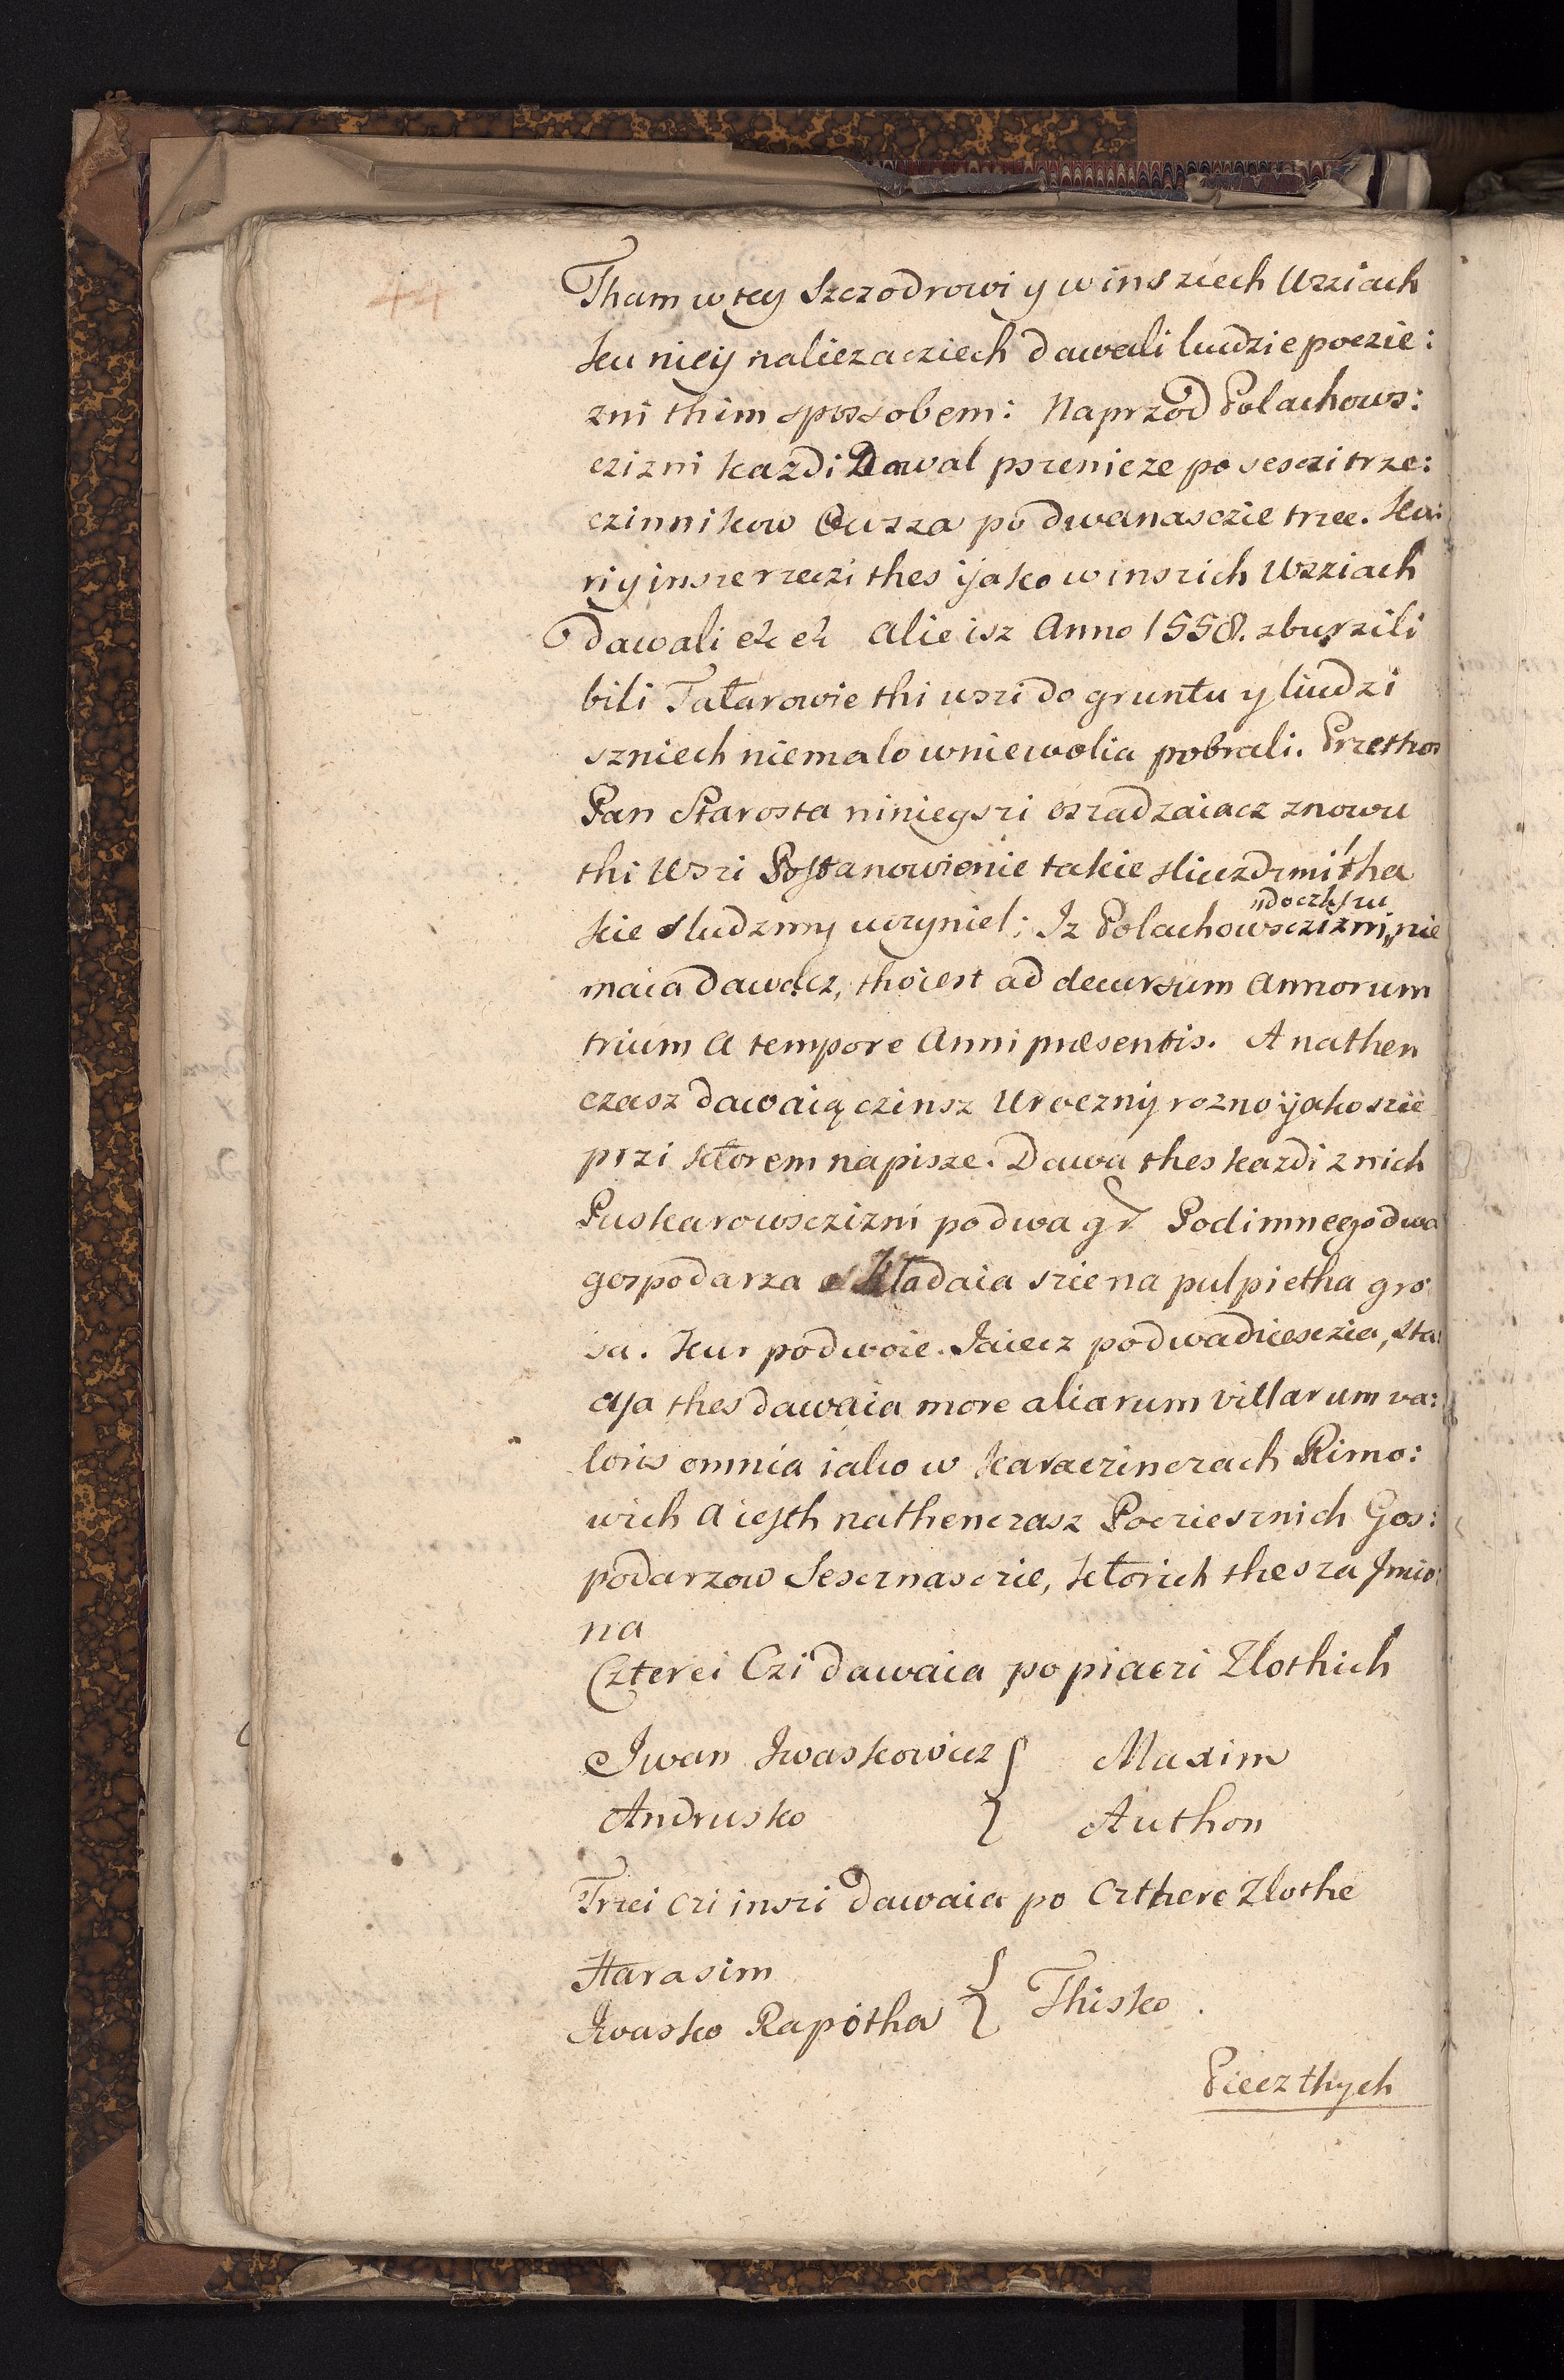 44
Tham w tey Szczodrowi y w inssiech Wssiach
ku nieÿ nalieząciech dawali ludzie poczie:
zni thim spossobem: Naprzod Polachows:
czizni kazdi Dawal pszenicze po sesczi trze:
czinnikow Owsza po dwanasczie trzec. Ku:
ri y insze rzeczi thes ÿako w inszich Wsziach
dawali etc etc Alie isz Anno 1558. zburzili
bili Tatarowie thi wszi do gruntu y liudzi
szniech niemalo wniewolia pobrali. Przetho
Pan Starosta niniegszi oszadzaiacz znowu
thi Wszi Postanowienie takie sliudzmi tha
kie sludzmy uczyniel; Iz Polachowsczizni do czassu nie
maia dawacz, tho iest ad decursum Annorum
trium a tempore Anni præsentis. A nathen
czasz dawaią czinsz Uroczny rozno ÿako szie
przi ktorem napisze. Dawa thes kazdi z nich
Puskarowsczizni po dwa gr Podimnego dwa
gospodarza skladaia szie na pulpietha gro
sa. Kur po dwoie. Iaiecz po dwadziesczia, Sta
cya thes dawaia more aliarum villarum va:
loris omnia iako w Karaczinczach Rimo:
wich a iesth nathenczasz Pocziesznich Gos:
podarzow Sescznasczie, ktorich thes za Imio
na
Czterei Czi dawaia po piaczi Zlothich
Iwan Iwaskowicz } Maxim
Andrusko } Authon
Trzei czi inszi dawaia po Czthere Zlothe
Harasim
Iwasko Rapotha } Thisko.
Piecz thych